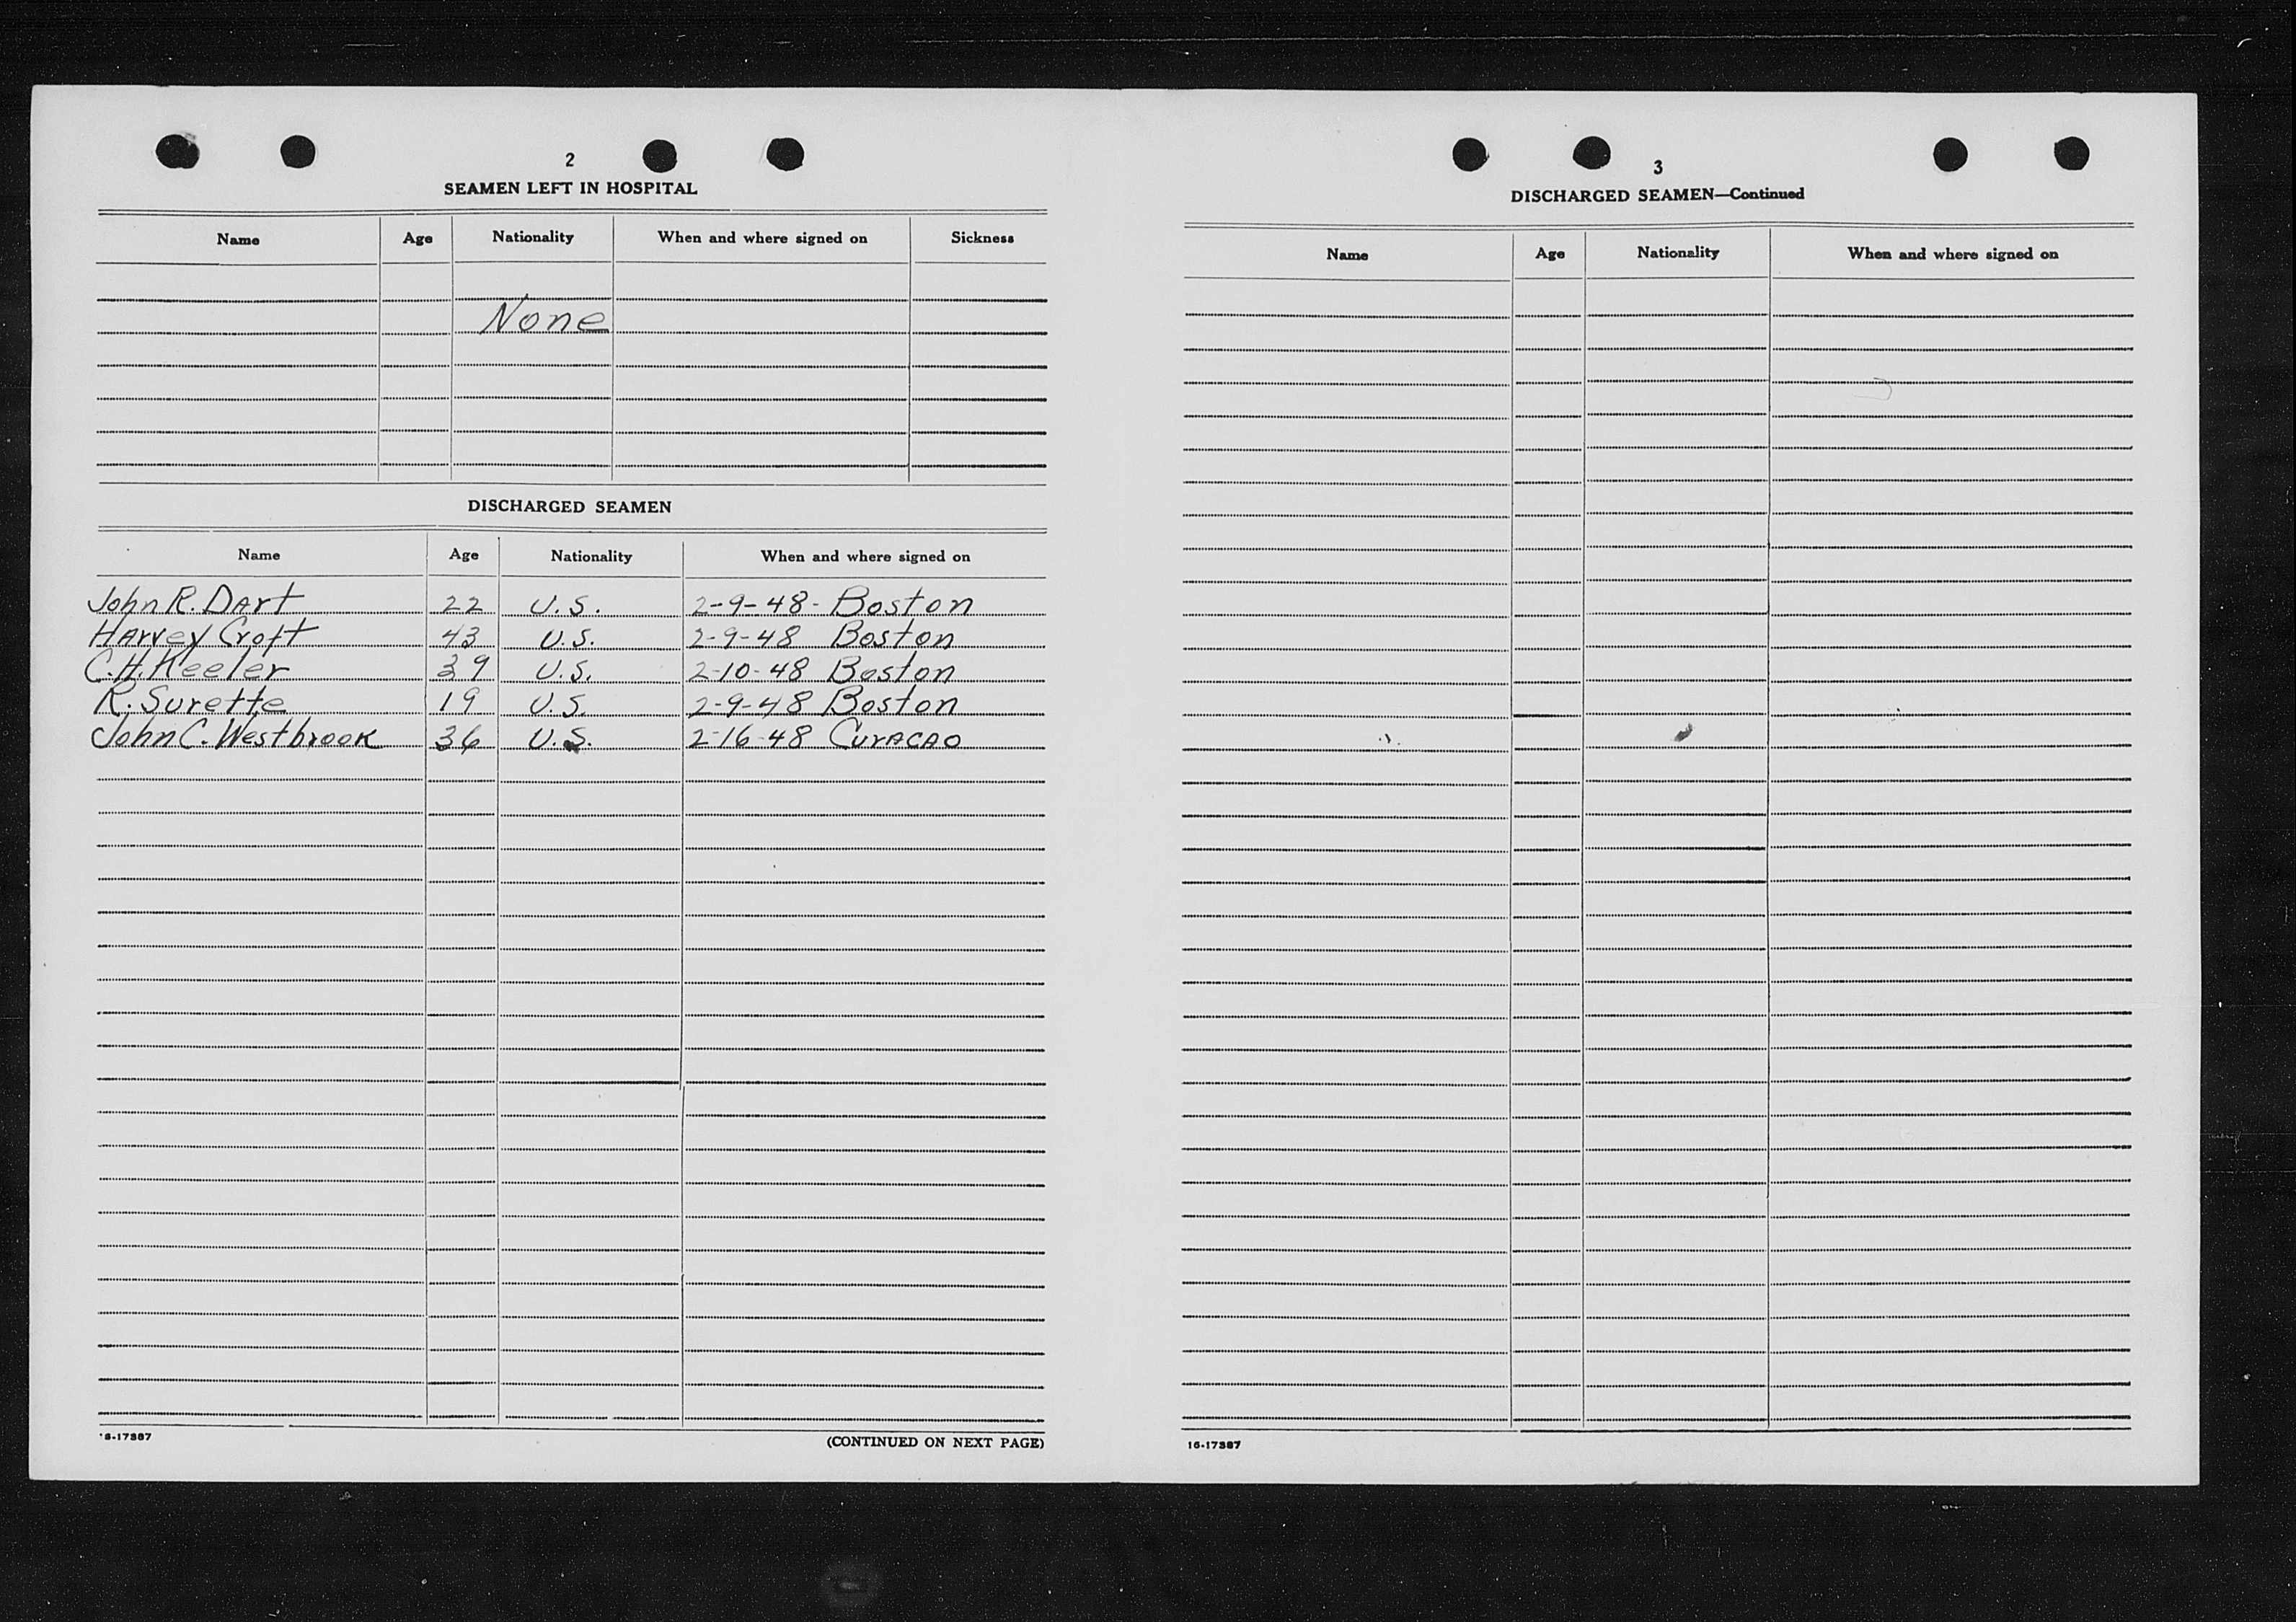 2
SEAMEN LEFT IN HOSPITAL
Name Age Nationality When and where signed on Sickness
None
DISCHARGED SEAMEN
Name Age Nationality When and where signed on
John R. Dart 22 U.S. 2-9-48- Boston
Harvey Croft 43 U.S. 2-9-48 Boston
C.H. Keeler 39 U.S. 2-10-48 Boston
R. Surette 19 U.S. 2-9-48 Boston
John C. Westbrook 36 U.S. 2-16-48 Curacao
(CONTINUED ON NEXT PAGE)
3
DISCHARGED SEAMEN—Continued
Name Age Nationality When and where signed on
16-17387